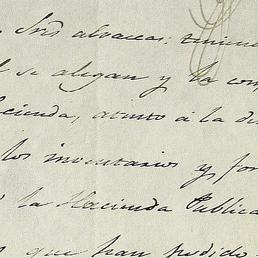 Sres albaceas: 
se alegan y la con
cienda, atento á la di
los inventarios y for
la Hacienda Publica
que han pedido